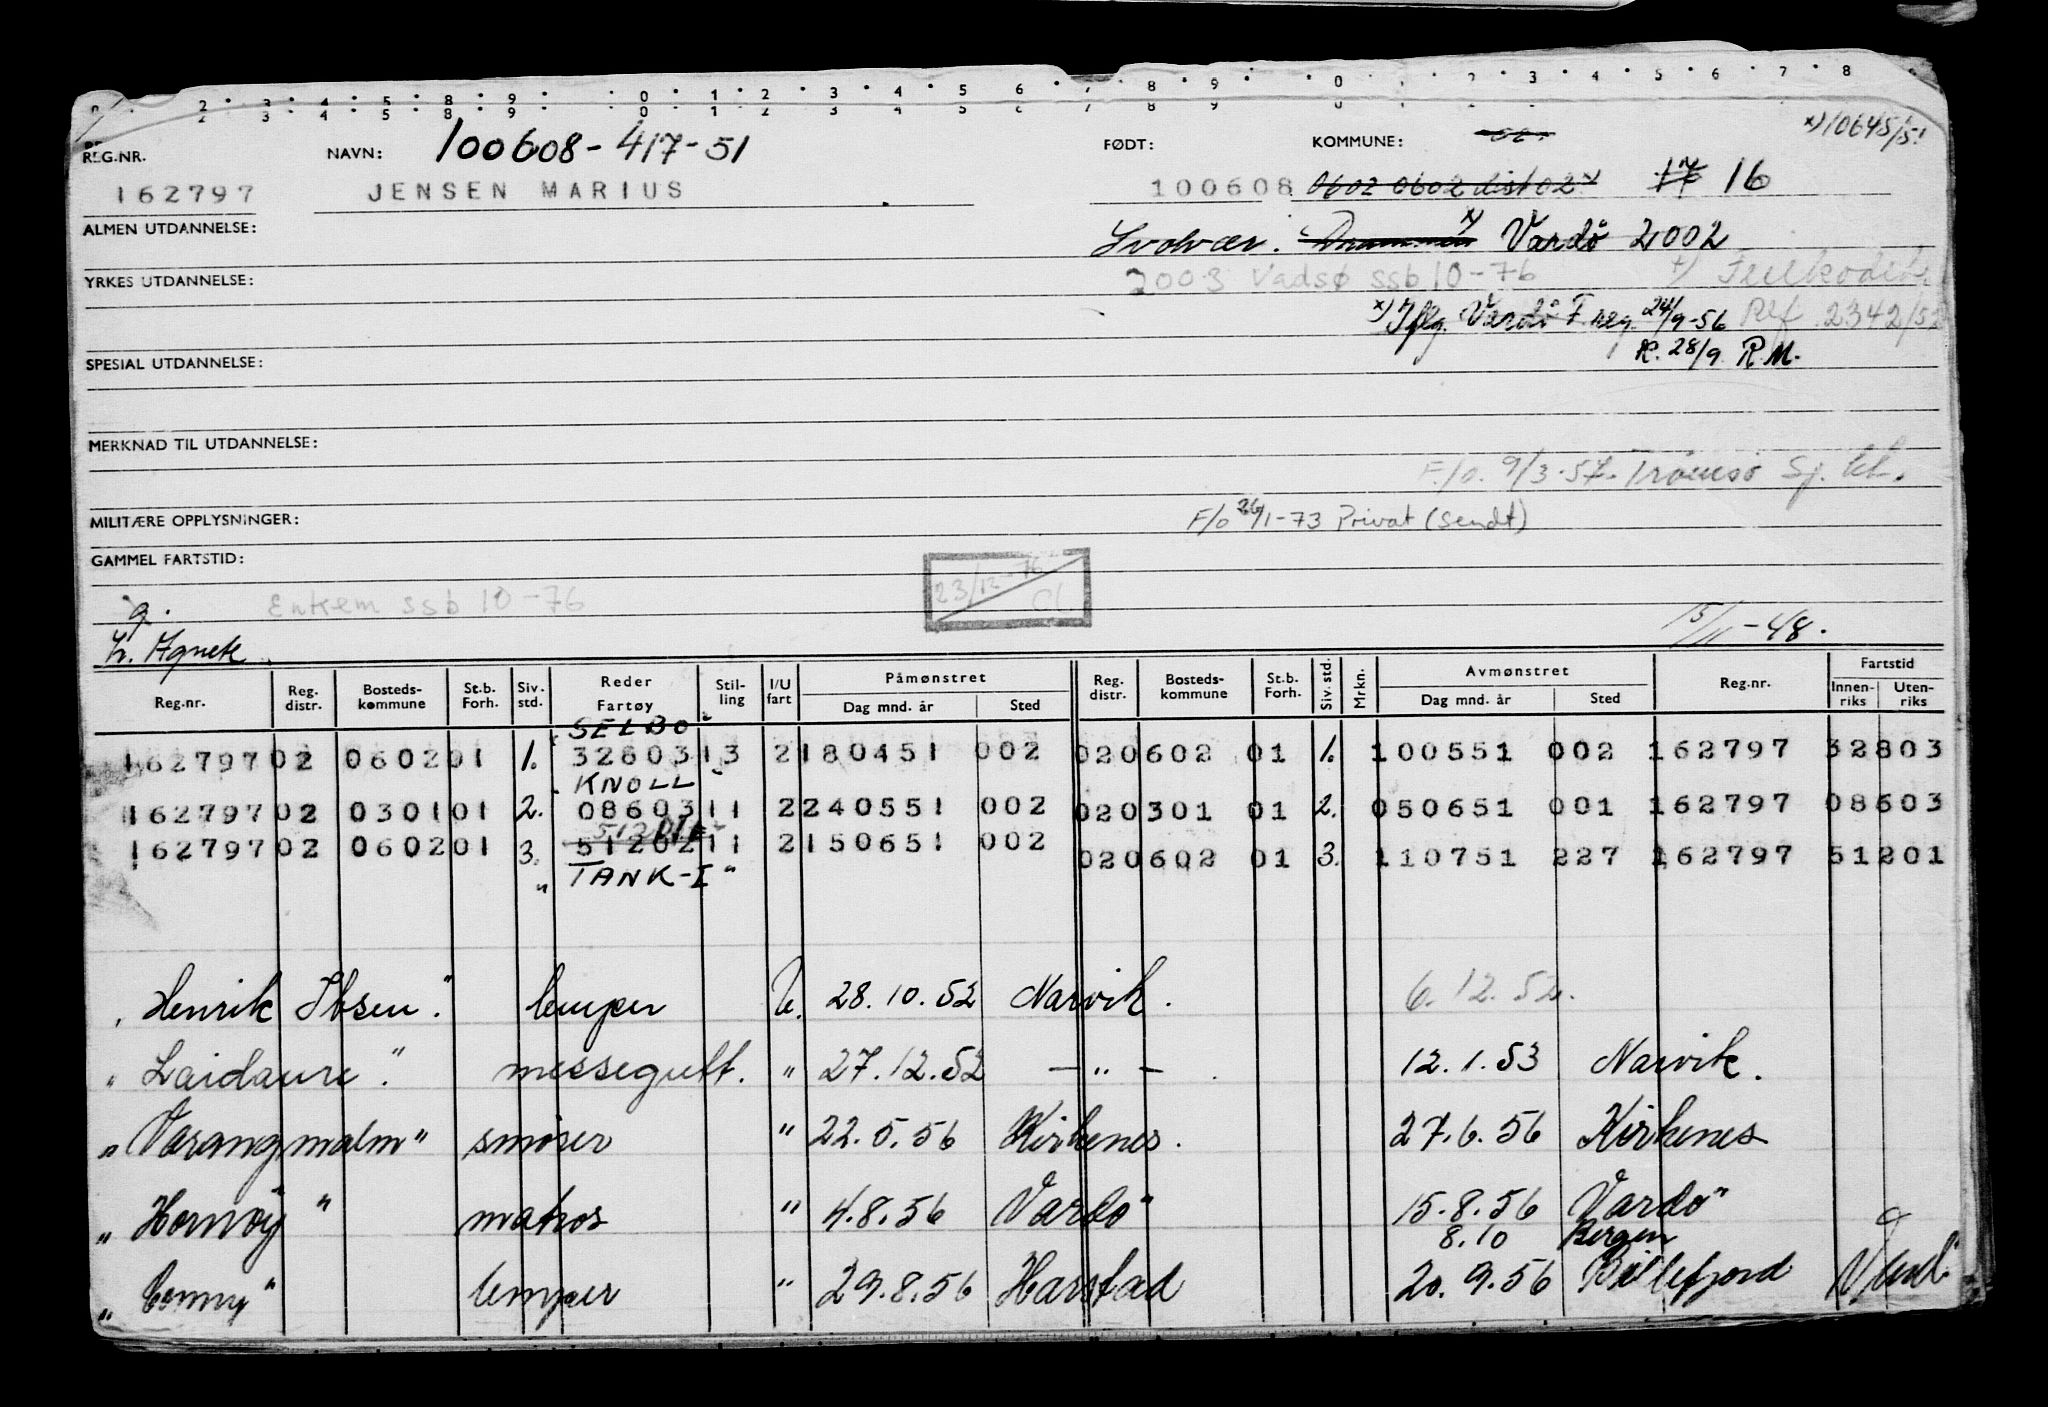 REG.NR. NAVN: 100608-417-51 FØDT: KOMMUNE: x)10645/51
162797 JENSEN MARIUS 100608 0602 0602 16
ALMEN UTDANNELSE: Svolvær. Drammen x) Vardö 2002
YRKES UTDANNELSE: 2003 Vadsø ssb 10-76
x) Iflg. Vardö F.reg. 24/9-56 Ref 2342/52
K. 28/9 R.M.
SPESIAL UTDANNELSE:
MERKNAD TIL UTDANNELSE:
F/o. 9/3-57. Tromsø Sj.
MILITÆRE OPPLYSNINGER: F/o 26/1-73 Privat (sendt)
GAMMEL FARTSTID:
23/12-76
g. Enkem ssb 10-76
15/11-48.
h. Agnete
Reg.nr. Reg. distr. Bosteds-kommune St.b. Forh. Siv. std. Reder Fartøy Stil-ling I/U fart Påmønstret Dag mnd. år Sted Reg. distr. Bosteds-kommune St.b. Forh. Siv. std. Mrkn. Avmønstret Dag mnd. år Sted Reg.nr. Fartstid Innen-riks Uten-riks
"SELBO"
162797 02 0602 01 1. 32803 13 2 180451 002 02 0602 01 1. 100551 002 162797 32803
"KNOLL"
162797 02 0301 01 2. 08603 11 2 240551 002 02 0301 01 2. 050651 001 162797 08603
162797 02 0602 01 3. 51202 11 2 150651 002 02 0602 01 3. 110751 227 162797 51201
"TANK-I"
"Henrik Ibsen". lemper U. 28.10.52 Narvik. 6.12.52.
"Laidaure". messegutt. " 27.12.52 -"- . 12.1.53 Narvik.
"Varangmalm" smører " 22.5.56 Kirkenes. 27.6.56 Kirkenes
"Hornøy" matros " 4.8.56 Vardö 15.8.56 Vardö
8.10 Bergen
"Conny" lemper " 29.8.56 Harstad 20.9.56 Billefjord Vend